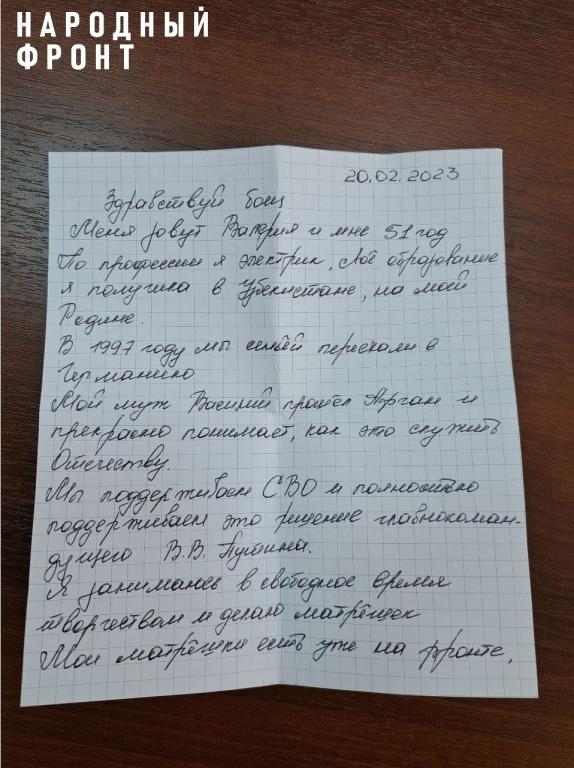 НАРОДНЫЙ
ФРОНТ
20.02.2023
Здравствуй боец
Меня зовут Валерия и мне 51 год
По профессии я электрик, моё образование
я получила в Узбекистане, на моей
Родине.
В 1997 году мы семьёй переехали в
Германию
Мой муж Василий прошёл Афган и
прекрасно понимает, как это служить
Отечеству.
Мы поддерживаем СВО и полностью
поддерживаем это решение главнокоман-
дущего В.В. Путина.
Я занимаюсь в свободное время
творчеством и делаю матрёшек
Мои матрёшки есть уже на фронте.